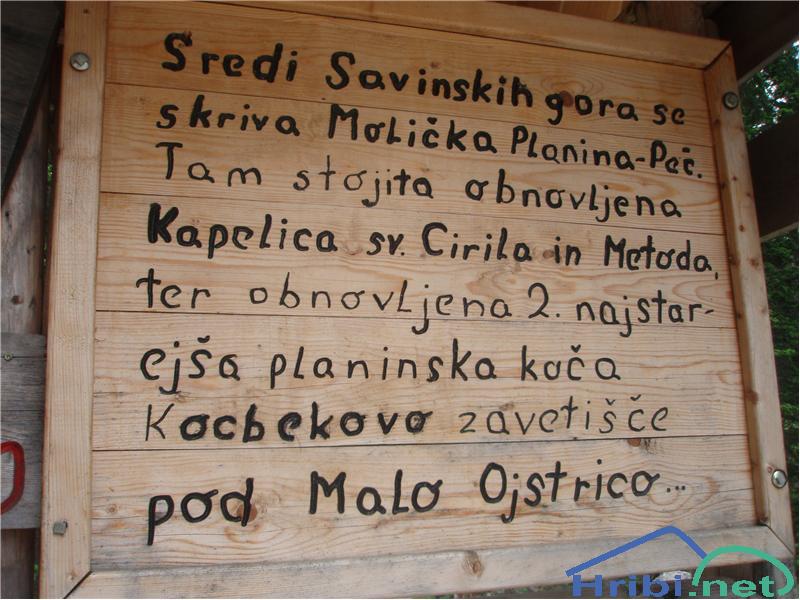 Sredi Savinskih gora se
skriva Molička Planina-Peč.
Tam stojita obnovljena
Kapelica sv. Cirila in Metoda,
ter obnovljena 2. najstar-
ejša planinska koča
Kocbekovo zavetišče
pod Malo Ojstrico...
Hribi.net